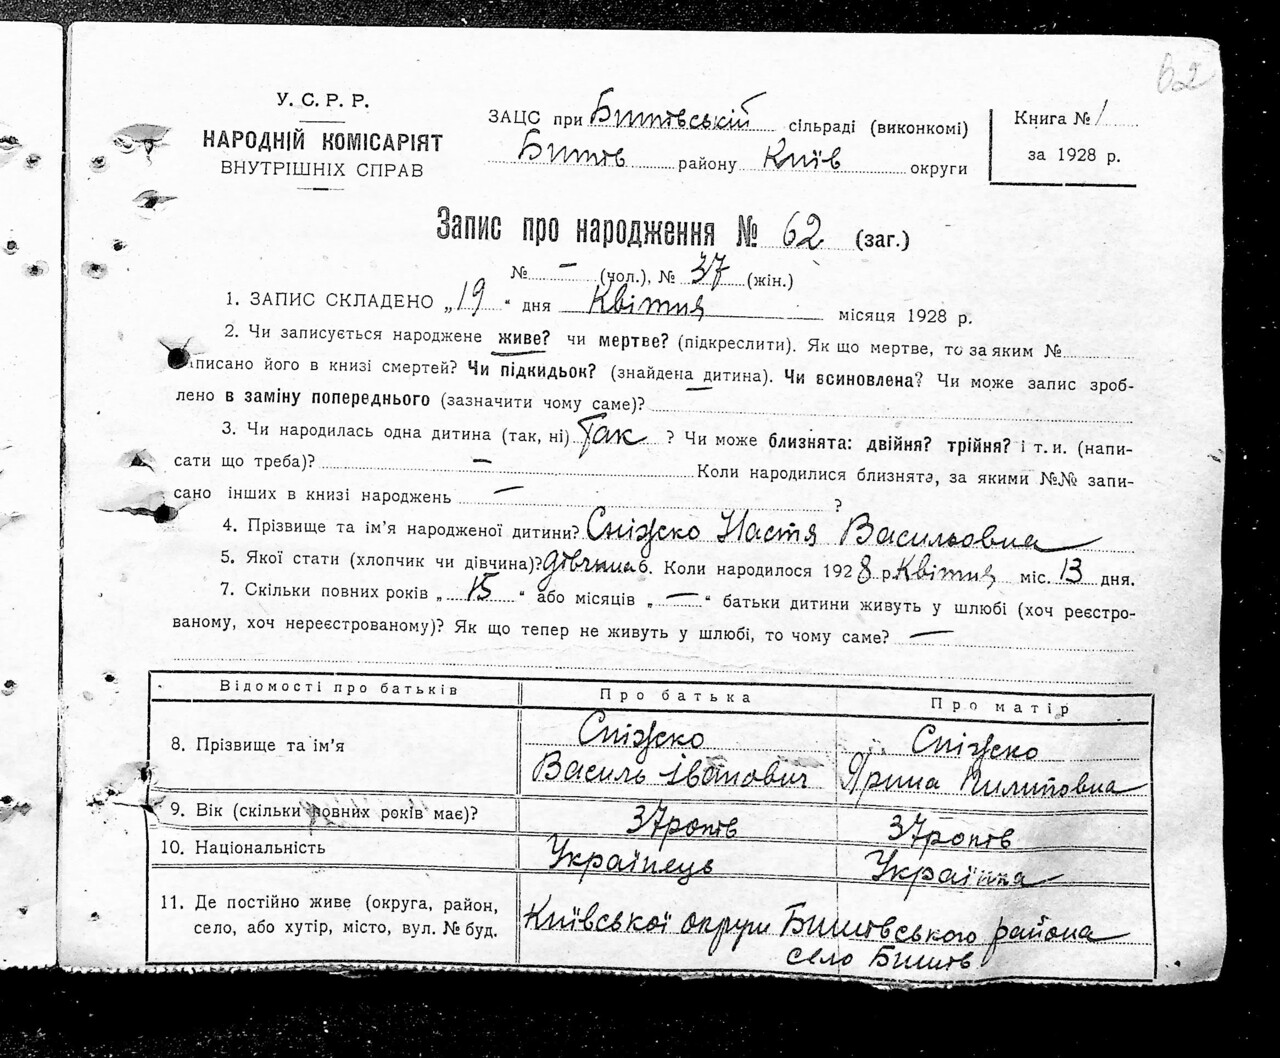 62
У. С. Р. Р.
НАРОДНІЙ КОМІСАРІЯТ
ВНУТРІШНІХ СПРАВ
ЗАЦС при Бишівській сільраді (виконкомі)
Бишів району Київ округи
Книга № 1
за 1928 р.
Запис про народження № 62 (заг.)
№ — (чол.), № 37 (жін.)
1. ЗАПИС СКЛАДЕНО „19“ дня Квітня місяця 1928 р.
2. Чи записується народжене живе? чи мертве? (підкреслити). Як що мертве, то за яким №
записано його в книзі смертей? Чи підкидьок? (знайдена дитина). Чи всиновлена? Чи може запис зроб-
лено в заміну попереднього (зазначити чому саме)?
3. Чи народилась одна дитина (так, ні) Так ? Чи може близнята: двійня? трійня? і т. и. (напи-
сати що треба)? — Коли народилися близнята, за якими №№ запи-
сано інших в книзі народжень — ?
4. Прізвище та ім’я народженої дитини? Сніжко Настя Васильовна
5. Якої стати (хлопчик чи дівчина)? дівчина 6. Коли народилося 1928 р. Квітня міс. 13 дня.
7. Скільки повних років „ 15 “ або місяців „ — “ батьки дитини живуть у шлюбі (хоч реєстро-
ваному, хоч нереєстрованому)? Як що тепер не живуть у шлюбі, то чому саме? —
Відомості про батьків Про батька Про матір
8. Прізвище та ім’я Сніжко Василь Іванович Сніжко Ярина Пилиповна
9. Вік (скільки повних років має)? 37 років 37 років
10. Національність Українець Українка
11. Де постійно живе (округа, район, Київської округи Бишівського района
село, або хутір, місто, вул. № буд. село Бишів